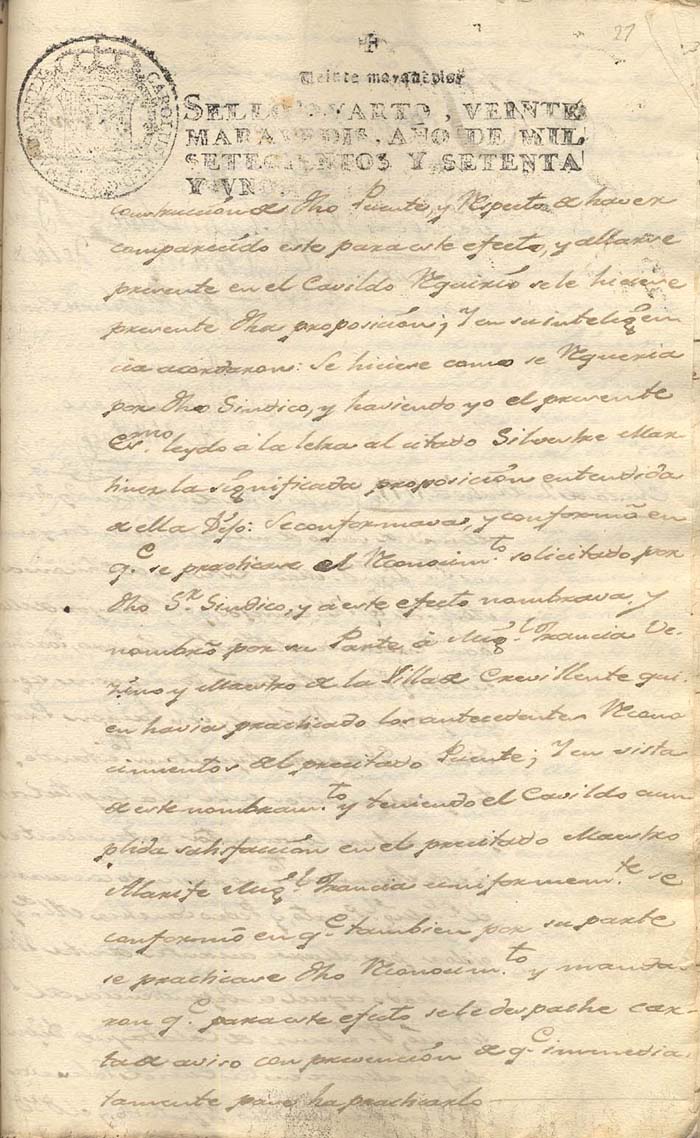 27
Veinte maravedis.
SELLO QVARTO, VEINTE
MARAVEDIS, AÑO DE MIL
SETECIENTOS Y SETENTA
Y VNO.
construccion de dho Puente, y Respecto de haver
comparecido este para este efecto, y allarse
presente en el Cavildo Requirio se le hiciese
presente dha proposicion; Y en su inteligen
cia acordaron: Se hiciese como se Requeria
por dho Sindico, y haviendo yo el presente
Essno. leydo à la letra al citado Silvestre Mar
tinez la significada proposicion entendida
de ella Dijo: Se conformava, y conformò en
q.e se practicase el Reconocim.to solicitado por
dho S.r Sindico, y à este efecto nombrava, y
nombrò por su Parte à Mig.l Francia Ve-
zino y Maestro de la Villa de Crevillente qui-
en havia practicado los antecedentes Recono
cimientos del precitado Puente; Y en vista
de este nombram.to y teniendo el Cavildo cum
plida satisfaccion en el precitado Maestro
Alarife Mig.l Francia uniformem.te se
conformò en q.e tambien por su parte
se practicase dho Reconocim.to y manda-
ron q.e para este efecto se le despache car-
ta de aviso con prevencion de q.e immedia
tamente pase ha practicarlo